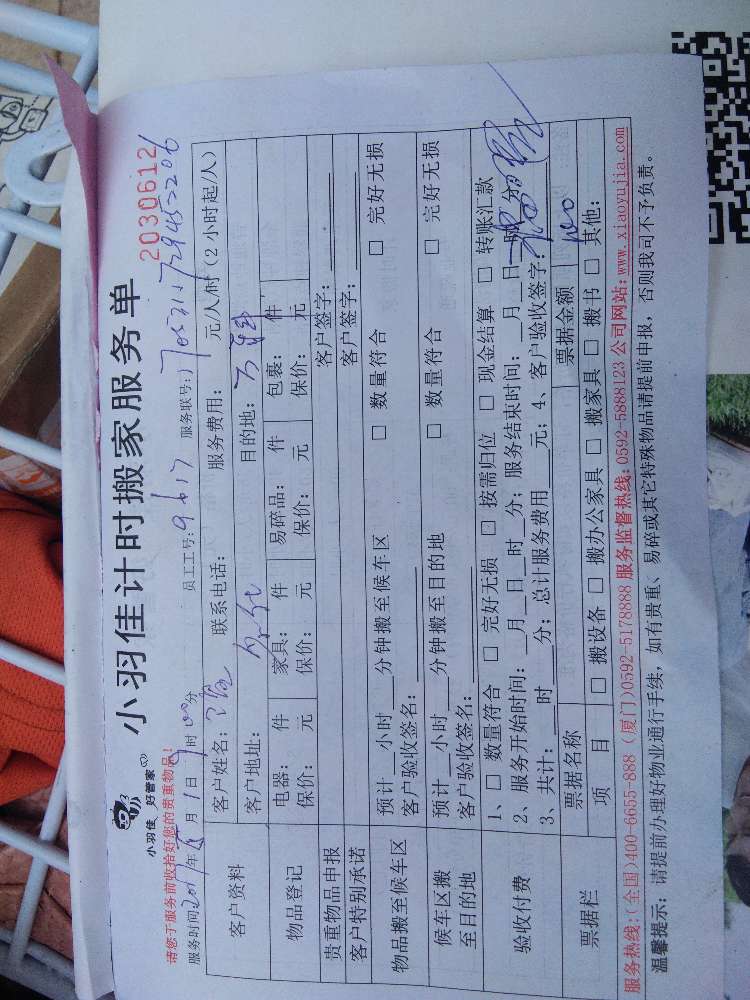 小羽佳计时搬家服务单
小羽佳 好管家
2030612
请您于服务前收拾好您的贵重物品！
服务时间 年 月1日9时00分 员工工号:9617 服务联号:
客户资料
客户姓名： 联系电话： 服务费用： 元/人/时(2小时起/人)
客户地址： 目的地：
物品登记
电器： 件 家具： 件 易碎品： 件 包裹： 件
保价： 元 保价： 元 保价： 元 保价： 元
贵重物品申报 客户签字：
客户特别承诺 客户签字：
物品搬至候车区
预计 小时 分钟搬至候车区 □ 数量符合 □ 完好无损
客户验收签名：
候车区搬至目的地
预计 小时 分钟搬至目的地 □ 数量符合 □ 完好无损
客户验收签名：
验收付费
1、□ 数量符合 □ 完好无损 □ 按需归位 □ 现金结算 □ 转账汇款
2、服务开始时间： 月 日 时 分；服务结束时间： 月 日 时 分；
3、共计： 时 分；总计服务费用 元；4、客户验收签字：
票据栏
票据名称 票据金额
项 目 □ 搬设备 □ 搬办公家具 □ 搬家具 □ 搬书 □ 其他：
服务热线：(全国)400-6655-888 (厦门)0592-5178888 服务监督热线：0592-5888123 公司网站：www.xiaoyujia.com
温馨提示：请提前办理好物业通行手续，如有贵重、易碎或其它特殊物品请提前申报，否则我司不予负责。